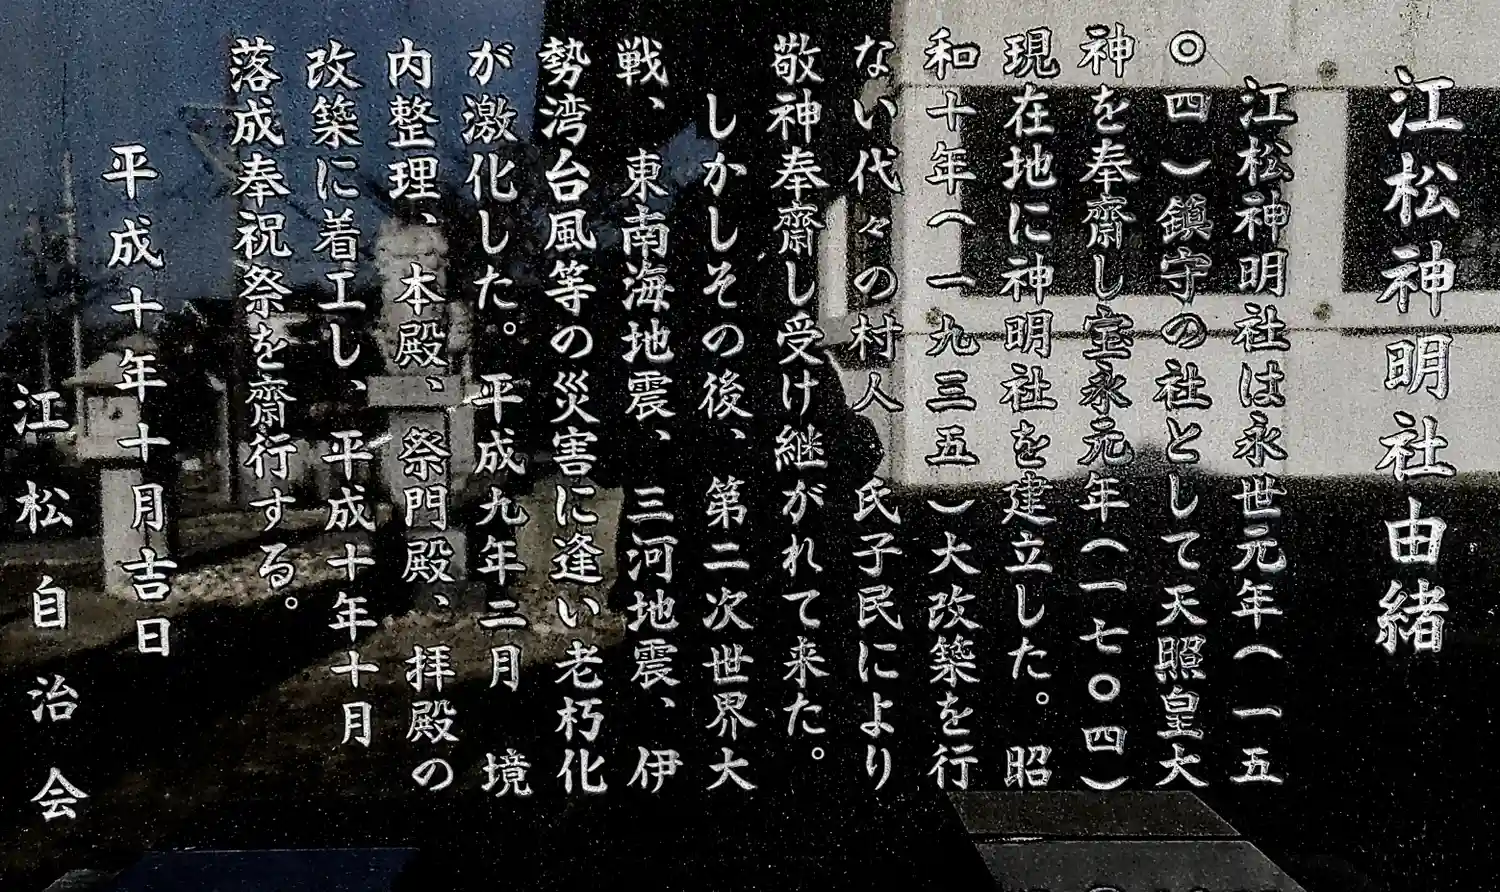 江松神明社由緒
江松神明社は永世元年(一五
〇四)鎮守の社として天照皇大
神を奉齋し宝永元年(一七〇四)
現在地に神明社を建立した。昭
和十年(一九三五)大改築を行
ない代々の村人 氏子民により
敬神奉齋し受け継がれて来た。
しかしその後、第二次世界大
戦、東南海地震、三河地震、伊
勢湾台風等の災害に逢い老朽化
が激化した。平成九年二月 境
内整理、本殿、祭門殿、拝殿の
改築に着工し、平成十年十月
落成奉祝祭を齋行する。
平成十年十月吉日
江松自治会